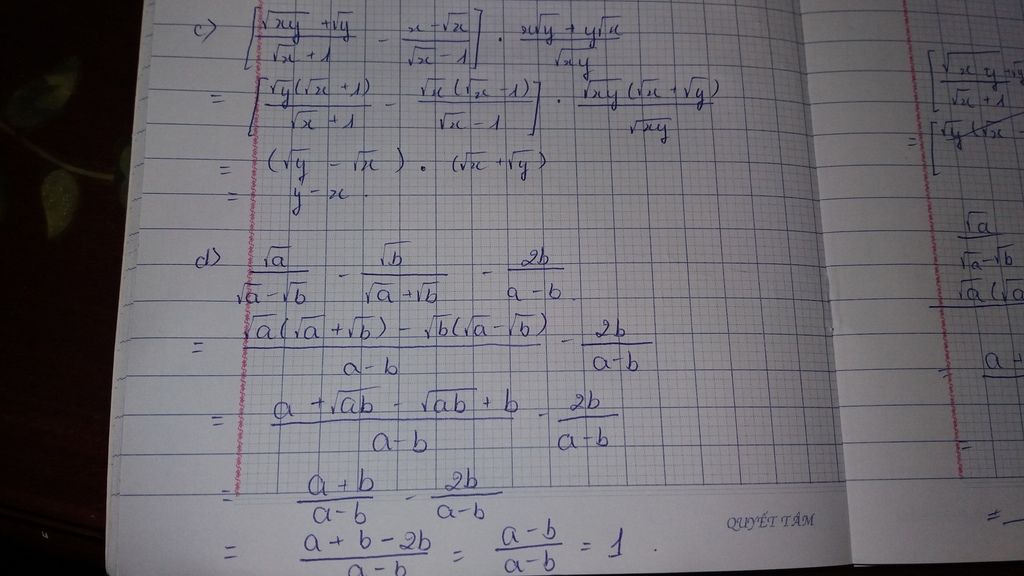 c) [(√xy + √y)/(√x + 1) - (x - √x)/(√x - 1)] . (x√y + y√x)/√xy
= [√y(√x + 1)/(√x + 1) - √x(√x - 1)/(√x - 1)] . √xy(√x + √y)/√xy
= (√y - √x) . (√x + √y)
= y - x .
d) √a/(√a - √b) - √b/(√a + √b) - 2b/(a - b) .
= (√a(√a + √b) - √b(√a - √b))/(a - b) - 2b/(a - b)
= (a + √ab - √ab + b)/(a - b) - 2b/(a - b)
= (a + b)/(a - b) - 2b/(a - b)
= (a + b - 2b)/(a - b) = (a - b)/(a - b) = 1 .
QUYẾT TÂM